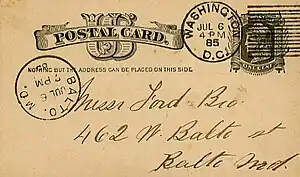 POSTAL CARD.
WASHINGTON
JUL 6
4 PM
85
D.C.
NOTHING BUT THE ADDRESS CAN BE PLACED ON THIS SIDE.
BALTO. MD.
JUL 6
PM
85
Messr Ford Bro
462 W. Balto st
Balto Md.